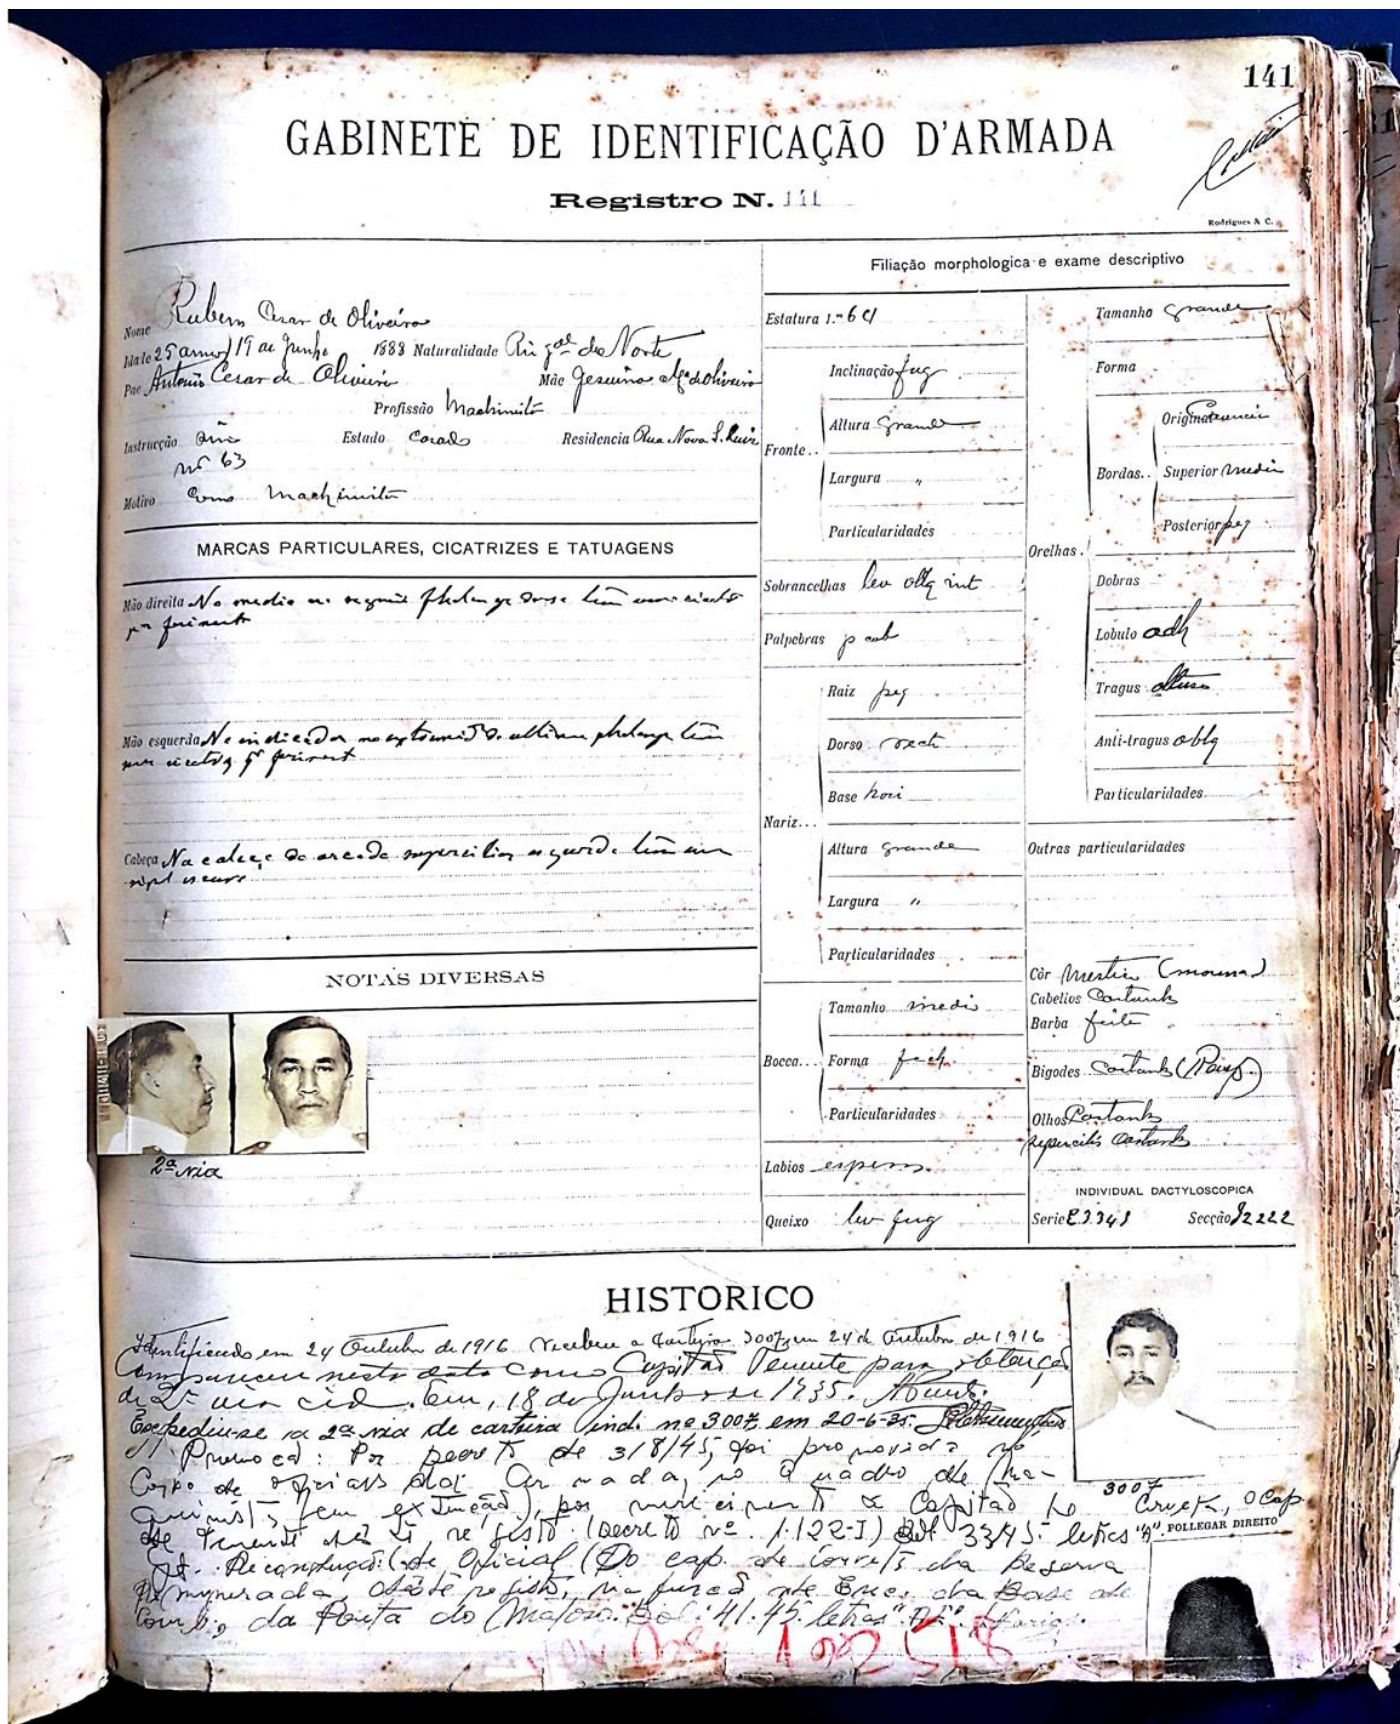 141
GABINETE DE IDENTIFICAÇÃO D'ARMADA
Registro N. 141
Rodrigues & C.
Nome Rubem Cesar de Oliveira
Idade 25 annos 19 de Junho 1888 Naturalidade Rio gde do Norte
Pae Antonio Cesar de Oliveira Mãe Gesuina de Oliveira
Profissão Machinista
Instrucção Estado Casado Residencia Rua Nova S. Luiz
nº 63
Motivo Como Machinista
MARCAS PARTICULARES, CICATRIZES E TATUAGENS
Mão direita No medio na segunda phalange tem uma cicatriz
por ferimento
Mão esquerda No indicador na ultima phalange tem
uma cicatriz por ferimento
Cabeça Na cabeça da arcada superciliar esquerda tem um
NOTAS DIVERSAS
2ª via
Filiação morphologica e exame descriptivo
Estatura 1.m 6
Fronte..
Inclinação fug
Altura Grande
Largura "
Particularidades
Sobrancelhas lev oblq int
Palpebras
Nariz...
Raiz peq
Dorso rect
Base hori
Altura grande
Largura "
Particularidades
Bocca...
Tamanho medio
Forma
Particularidades
Labios
Queixo lev fug
Orelhas.
Tamanho Grande
Forma
Bordas..
Original
Superior media
Posterior peq
Dobras
Lobulo adh
Tragus
Anti-tragus oblq
Particularidades
Outras particularidades
Côr Mestiço (morena)
Cabellos Castanhos
Barba feita
Bigodes Castanhos
Olhos Castanhos
supercilios castanhos
INDIVIDUAL DACTYLOSCOPICA
Serie E3343 Secção I2222
HISTORICO
Identificado em 24 Outubro de 1916 recebeu a Carteira 3007 em 24 de Outubro de 1916
Compareceu nesta data como Capitão Tenente para obtenção
da 2ª via cid. Em, 18 de Junho de 1935.
Expediu-se a 2ª via de carteira ind. nº 3007 em 20-6-35.
Promoção: Por decreto de 3/8/45, foi promovido no
Corpo de oficiais da Armada, no Quadro de Ma-
quinistas (em extinção), por merecimento a Capitão de Corveta, o Cap.
de Tenente deste registo. (Decreto nº 1.122-I) Bol 33/45. letras "A".
Of. Recondução: (de Oficial (Do cap. de Corveta da Reserva
Remunerada, deste registo, na função de Enc. da Base de
Comb. da Ponta do Matoso. Bol. 41.45. letras
3007
POLLEGAR DIREITO